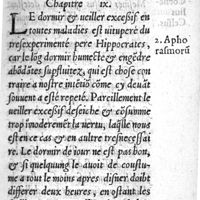 Chapitre ix.
LE dormir & veiller excessif en
toutes maladies est vituperé du
tresexperimenté pere Hippocrates,
car le log dormir humecte & engēdre
abōdātes supfluitez, qui est chose con
traire a nostre inietiō cōme cy deuāt
souuent a esté repeté. Pareillement le
veiller excessif deseiche & cōsumme
trop immoderemēt la vertu, laqlle nous
est en ce cas & en autre tresnecessai
re. Le dormir de iour ne est pas bon,
& si quelquung le auoit de coustu-
me a tout le moins apres disner doibt
differer deux heures, en ostant les
2. Apho
rasmorū